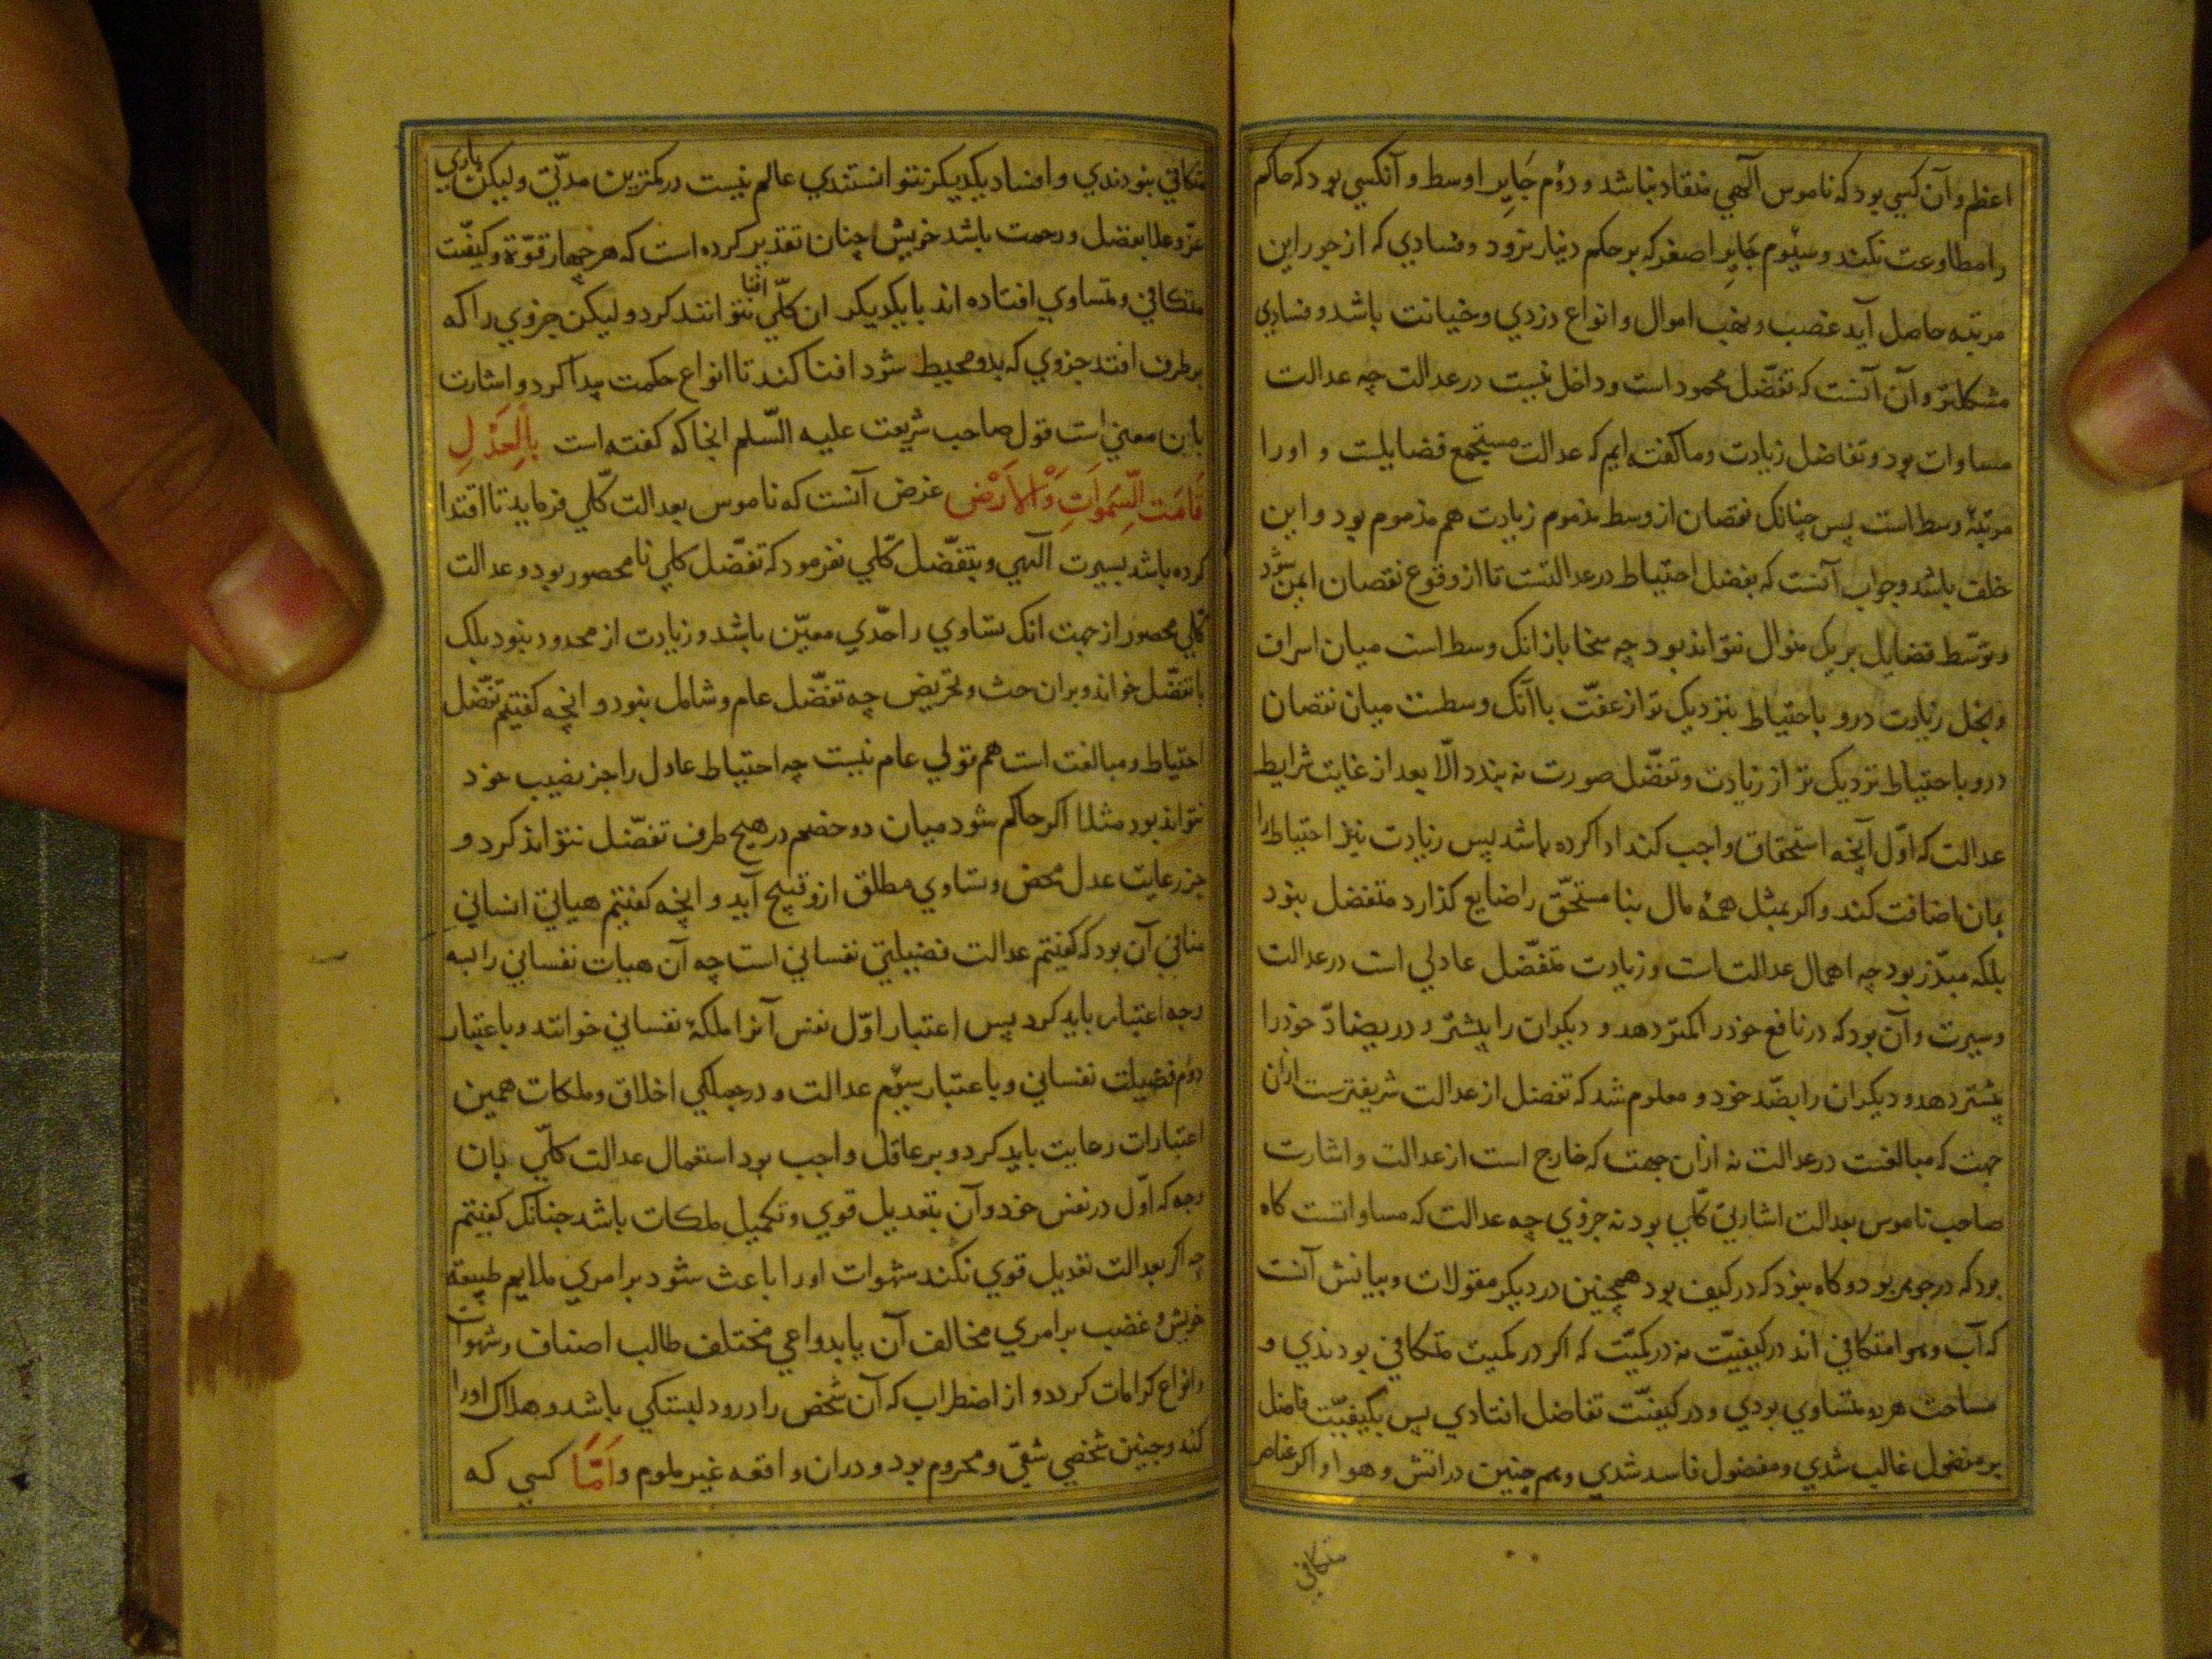 اعظم و آن کسی بود که ناموس آلهی منقاد نباشد و دوم جایر اوسط و آنکسی بود که حاکم
را مطاوعت نکند و سیوم جایر اصغر که بر حکم دینار نرود و فسادی که از جور این
مرتبه حاصل آید غصب و نهب اموال و انواع دزدی و خیانت باشد و فسادی
مشکلتر و آن آنست که تفضّل محمود است و داخل نیست در عدالت چه عدالت
مساوات بود و تفاضل زیادت و ما گفته ایم که عدالت مستجمع فضایلست و او را
مرتبهٔ وسط است پس چنانک نقصان از وسط مذموم زیادت هم مذموم بود و این
خلف باشد و جواب آنست که تفضل احتیاط در عدالتست تا از وقوع نقصان ایمن شود
و توسّط فضایل بر یک منوال نتواند بود چه سخا بازانک وسط است میان اسراف
و بخل زیادت درو باحتیاط بنزدیک تر از عفّت باآنک وسطست میان نقصان
درو باحتیاط نزدیک تر از زیادت و تفضّل صورت نه بندد الّا بعد از غایت شرایط
عدالت که اوّل آنچه استحقاق واجب کند ادا کرده باشد پس زیادت نیز احتیاط را
بان اضافت کند و اکر بمثل همهٔ مال بنا مستحقّ را ضایع کذارد متفضل بنود
بلکه مبذّر بود چه اهمال عدالت است و زیادت متفضّل عادلی است در عدالت
و سیرت و آن بود که در نافع خود را کمتر دهد و دیکران را بیشتر و در یضادّ خود را
بیشتر دهد و دیکران را بضّد خود و معلوم شد که تفضل از عدالت شریفترست ازان
جهت که مبالغت در عدالت نه ازان جهت که خارج است از عدالت و اشارت
صاحب ناموس بعدالت اشارتی کلّی بود نه جزوی چه عدالت که مساواتست کاه
بود که در جوهر بود و کاه بنود که در کیف بود همچنین در دیکر مقولات و بیانش آنست
که آب و هوا متکافی اند در کیفیّت نه در کمیّت که اکر در کمیت متکافی بودندی و
مساحت هر دو متساوی بودی و در کیفیّت تفاضل افتادی پس بکیفیّت فاضل
بر مفضول غالب شدی و مفضول فاسد شدی و هم چنین در اتش و هوا و اکر عناصر
متکافی
متکافی بنودندی و افساد یکدیکر نتوانستندی عالم نیست در کمترین مدّتی و لیکن باری
عزّ و علا بفضل و رحمت باشد خویش چنان تقدیر کرده است که هر چهار قوّة و کیفیّت
متکافی و متساوی افتاده اند با یکدیکر ان کلّی افنا نتوانند کرد و لیکن جزوی را که
بر طرف افتد جزوی که بدو محیط شود افنا کند تا انواع حکمت پیدا کردد و اشارت
بان معنی است قول صاحب شریعت علیه السّلم انجا که کفته است بِالعَدْلِ
قَامَت السَّمَوَاتِ وَالاَرْض غرض آنست که ناموس بعدالت کلّی فرماید تا اقتدا
کرده باشد بسیرت آلهی و بتفضّل کلّی نفرمود که تفضّل کلی نا محصور بود و عدالت
کلّی محصور از جهت انک تساوی را حدّی معیّن باشد و زیادت از محدود بنود بلک
با تفضّل خواند و بران حث و تحریض چه تفضّل عام و شامل بنود و انچه کفتیم تفّضل
احتیاط و مبالغت است هم قولی عام نیست چه احتیاط عادل را جز نصیب خود
نتواند بود مثلا اکر حاکم شود میان دو خصم در هیچ طرف تفضّل نتواند کرد و
جز رعایت عدل محض و تساوی مطلق ازو قبیح آید و انچه کفتیم هیاتی انسانی
منافی آن بود که کفتیم عدالت فضیلتی نفسانی است چه آن هیات نفسانی را بسه
وجه اعتبار باید کرد پس اعتبار اوّل نفس آنرا ملکهٔ نفسانی خوانند و باعتبار
دوم فضیلت نفسانی و باعتبار سیوم عدالت و در جملکی اخلاق و ملکات همین
اعتبارات رعایت باید کرد و بر عاقل واجب بود استعمال عدالت کلّی بان
وجه که اوّل در نفس خود و آن بتعدیل قوی و تکمیل ملکات باشد جنانک کفتیم
چه اکر بعدالت تعدیل قوی نکند شهوات او را باعث شود بر امری ملایم طبیعة
خویش و غضب بر امری مخالف آن یا بدواعی مختلف طالب اصناف و شهوات
و انواع کرامات کردد و از اضطراب که آن شخص را در و دلبستکی باشد و هلاک او را
کند و چنین شخصی شقی و محروم بود و دران واقعه غیر ملوم و اَمَّا کسی که